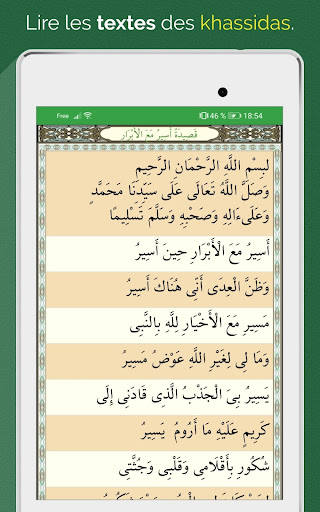 Lire les textes des khassidas.
Free 46 % 18:54
قَصِيدَةُ أَسِيرُ مَعَ الْأَبْرَارِ
لبِسْمِ اللَّهِ الرَّحْمَانِ الرَّحِيمِ
وَصَلَّ اللَّهُ تَعَالَى عَلَى سَيِّدِنَا مَحَمَّدٍ
وَعَلَىءَالِهِ وَصَحْبِهِ وَسَلَّمَ تَسْلِيمًا
أَسِيرُ مَعَ الْأَبْرَارِ حِينَ أَسِيرُ
وَظَنَّ الْعِدَى أَنِّى هُنَاكَ أَسِيرُ
مَسِيرِ مَعَ الْأَخْيَارِ لِلَّهِ بِالنَّبِى
وَمَا لِى لِغَيْرِ اللَّهِ عَوْضُ مَسِيرُ
يَسِيرُ بِىَ الْجَذْبُ الَّذِى قَادَنِى إِلَى
كَرِيمٍ عَلَيْهِ مَا أَرُومُ يَسِيرُ
شَكُورٍ بِأَقْلَامِى وَقَلْبِى وَجُثَّتِى